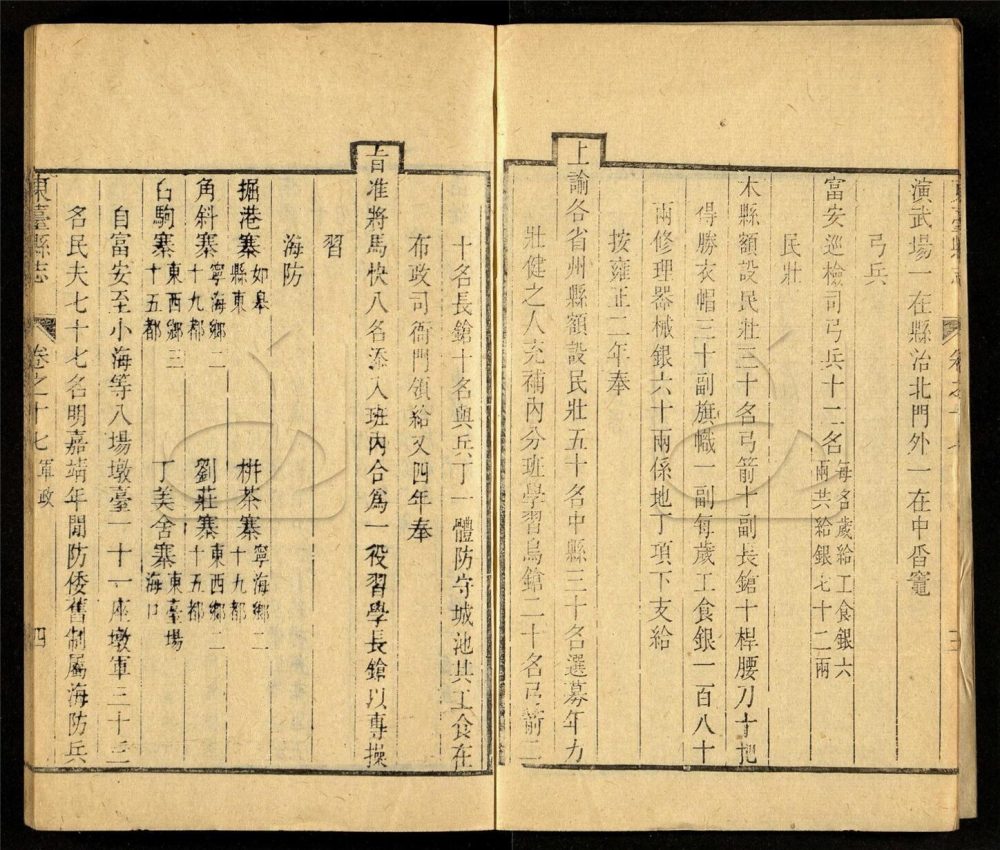 演武場 在縣治北門外一在中香竈
弓兵
富安巡檢司弓兵十二名 每名歲給工食銀六
兩共給銀七十二兩
民壯
本縣額設民壯三十名弓箭十副長鎗十桿腰刀十把
得勝衣帽三十副旗幟一副每歲工食銀一百八十
兩修理器械銀六十兩係地丁項下支給
按雍正二年奉
上諭各省州縣額設民壯五十名中縣三十名選募年力
壯健之人充補內分班學習鳥鎗二十名弓箭二
十名長鎗十名與兵丁一體防守城池其工食在
布政司衙門領給又四年奉
旨准將馬快八名添入班內合爲一役習學長鎗以專操
習
海防
掘港寨 如皋縣東 栟茶寨 寧海鄉二十九都
角斜寨 寧海鄉二十九都 劉莊寨 東西鄉二十五都
白駒寨 東西鄉三十五都 丁美舍寨 東臺場海口
自富安至小海等八場墩臺一十一座墩軍三十三
名民夫七十七名明嘉靖年間防倭舊制屬海防兵
東臺縣志 卷之十七 軍政 四